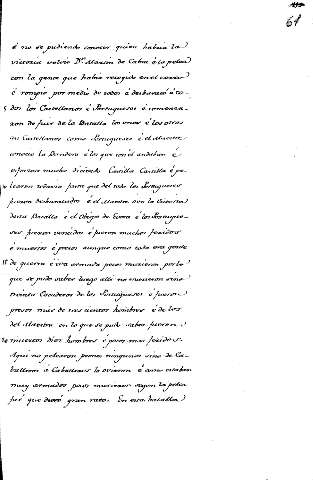 61
é no se pudiendo conocer quien habia la
victoria volvio Dn. Martin de Cabra á la pelea
con la gente que habia recogido en el cerro
é rompio por medio de todos é desbarató á to-
5 dos los Castellanos é Portugueses é comenza-
ron de fuir de la Batalla los unos é los otros
asi Castellanos como Portugueses é el Maestre
conocio la Bandera é los que con él andaban é
esforzose mucho diciendo Castilla Castilla é pe-
learon todavia fasta que del todo los Portugueses
fueron desbaratados é el Maestre con la Victoria
desta Batalla é el Obispo de Evora é los Portugue-
ses fueron vencidos é fueron muchos feridos
é muertos é presos aunque como toda era gente
15 de guerra é iva armada pocos murieron por lo
que se pudo saber luego alli no murieron sino
treinta Caualeros de los Portugueses é fueron
presos mas de trescientos hombres é de los
del Maestre en lo que se pudo saber fueron
20 muertos diez hombres é pocos mas feridos.
Aqui no pelearon peones ningunos sino de Ca-
balleros á Caballeros lo ovieron é como estaban
muy armados pocos murieron segun la pelea
fué que duró gran rato. En esta batalla